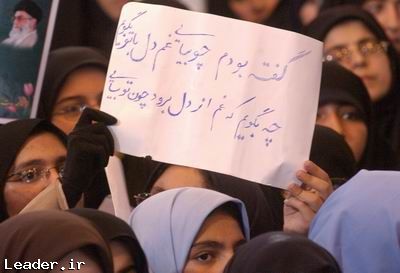 گفته بودم چو بیایی غم دل با تو بگویم
چه بگویم که غم از دل برود چون تو بیایی
Leader.ir